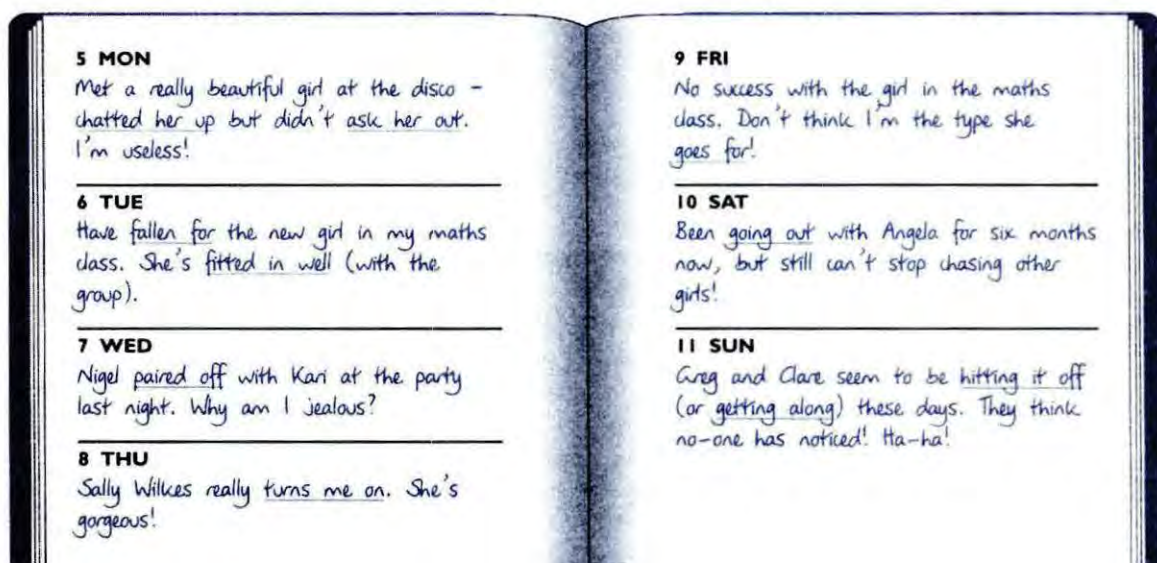 5 MON
Met a really beautiful girl at the disco -
chatted her up but didn't ask her out.
I'm useless!
6 TUE
Have fallen for the new girl in my maths
class. She's fitted in well (with the
group).
7 WED
Nigel paired off with Kari at the party
last night. Why am I jealous?
8 THU
Sally Wilkes really turns me on. She's
gorgeous!
9 FRI
No success with the girl in the maths
class. Don't think I'm the type she
goes for!
10 SAT
Been going out with Angela for six months
now, but still can't stop chasing other
girls!
11 SUN
Greg and Clare seem to be hitting it off
(or getting along) these days. They think
no-one has noticed! Ha-ha!